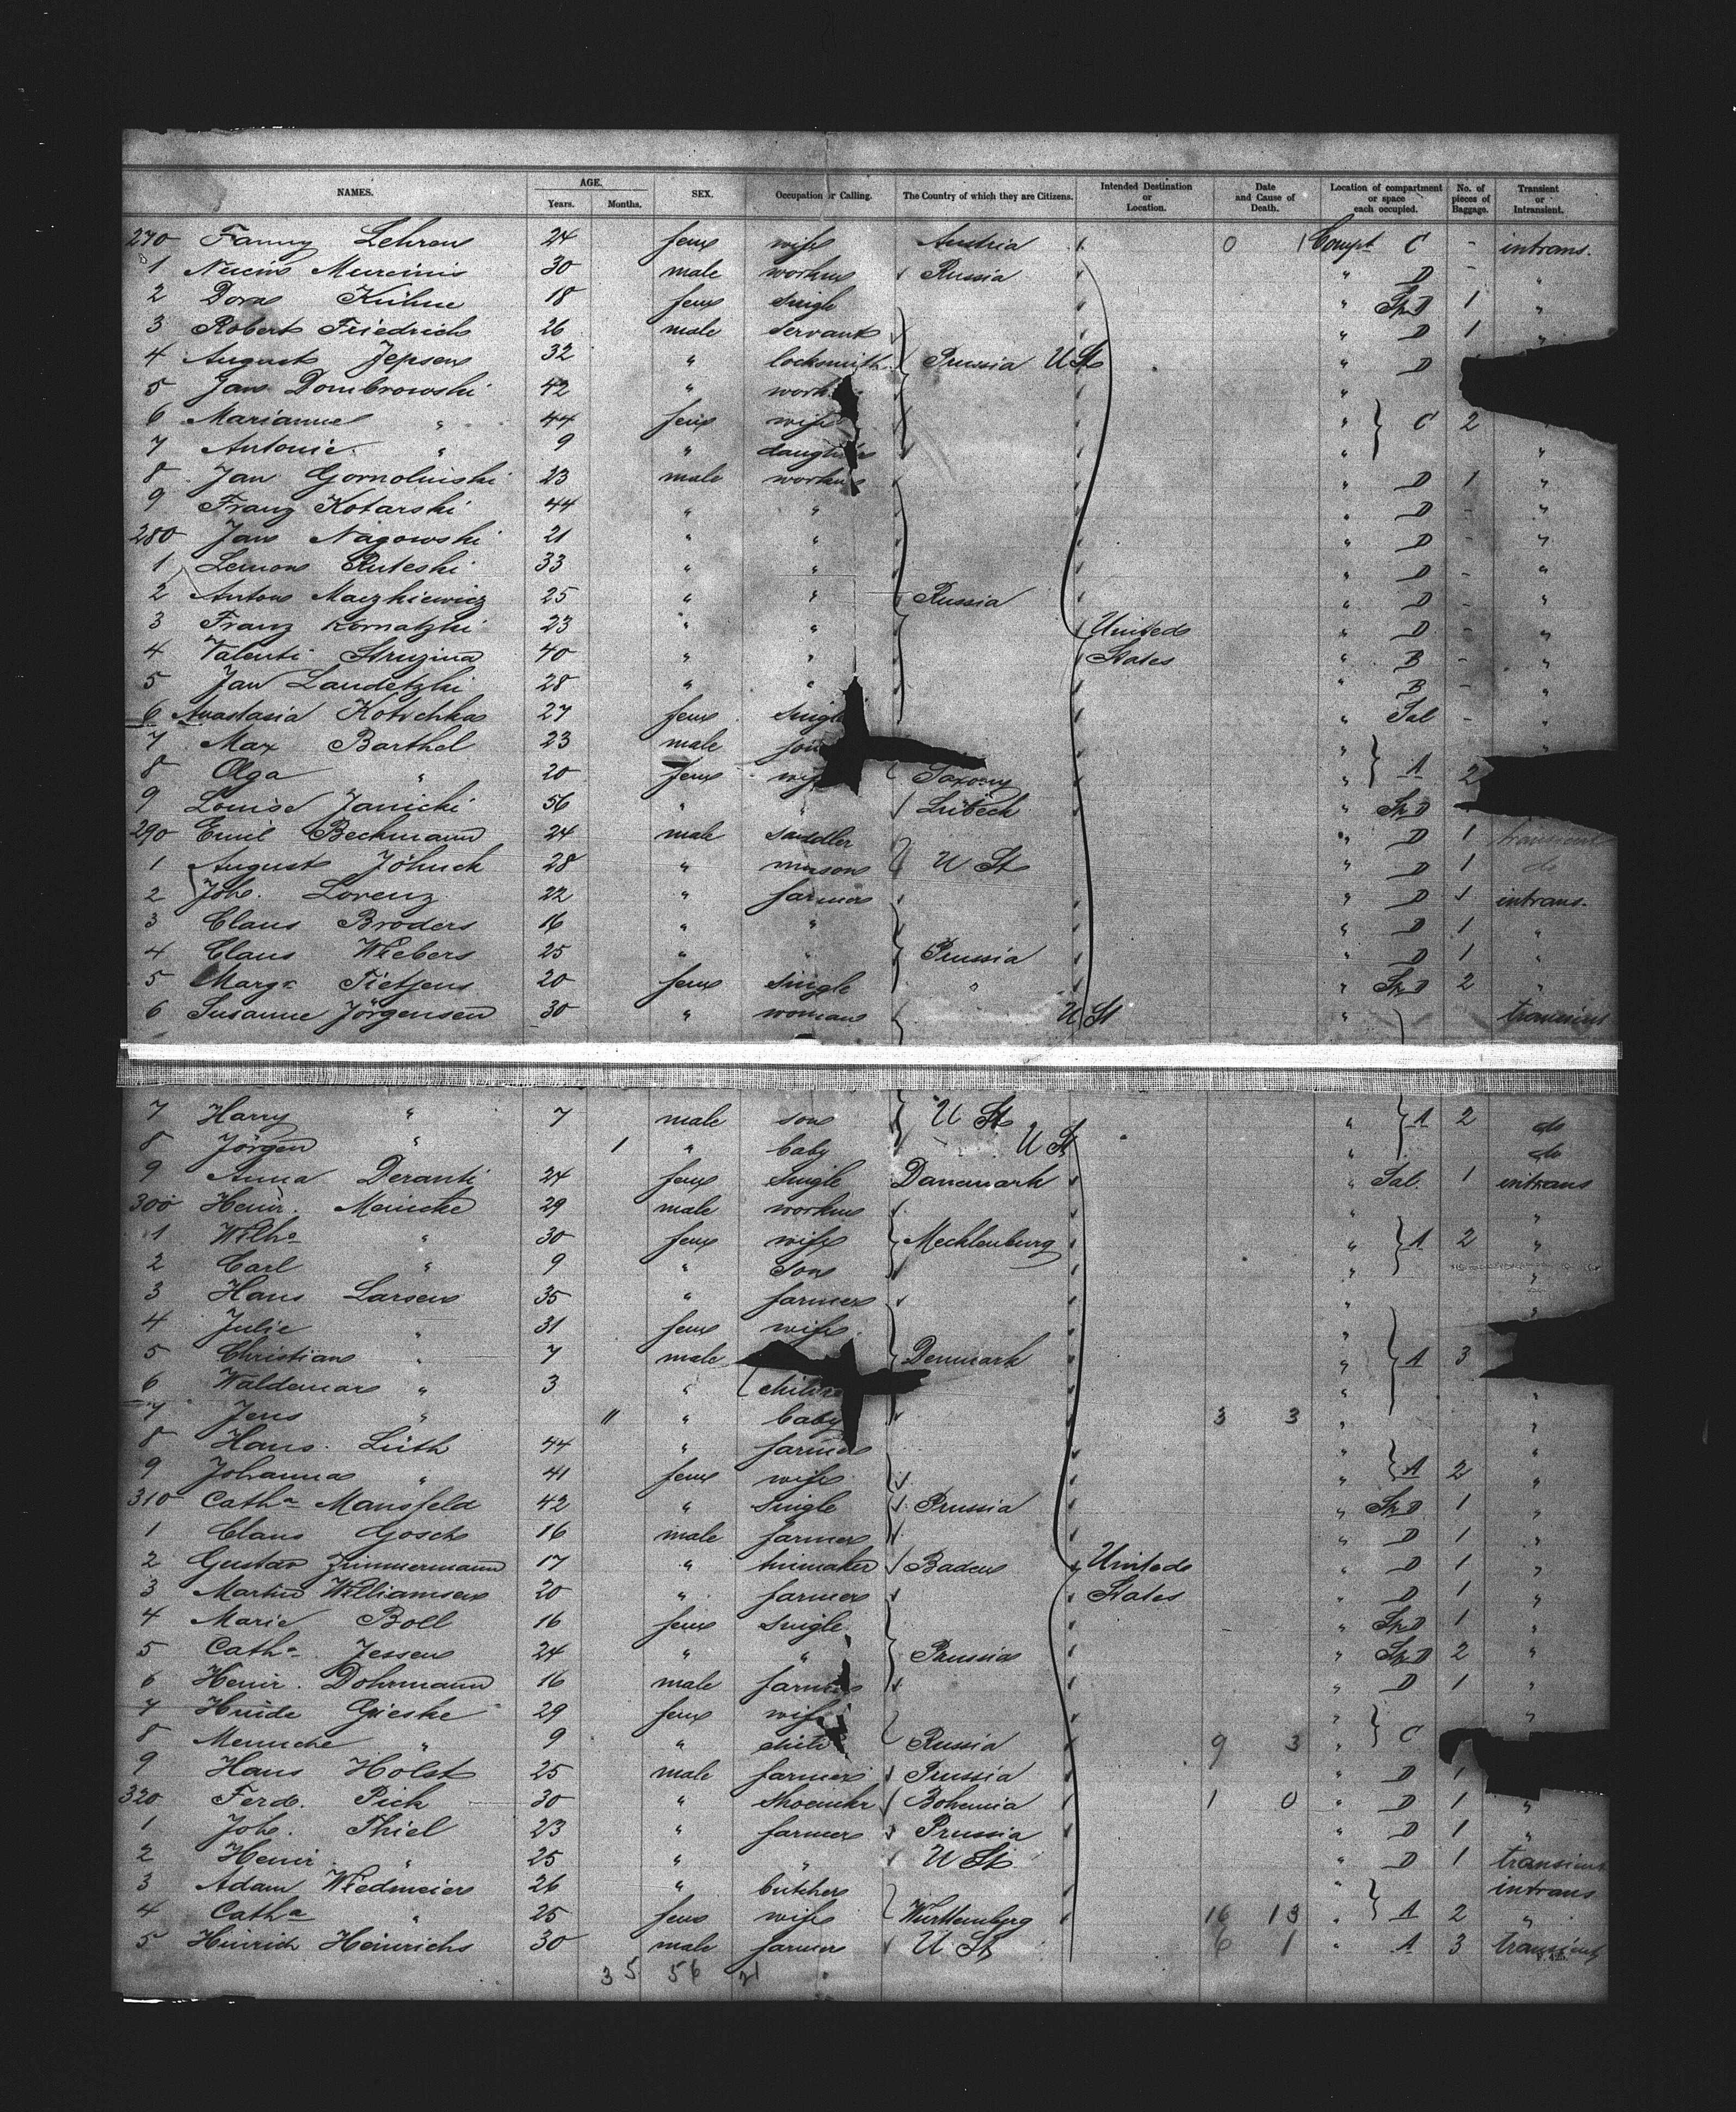 NAMES. AGE. Years. Months. SEX. Occupation or Calling. The Country of which they are Citizens. Intended Destination or Location. Date and Cause of Death. Location of compartment or space each occupied. No. of pieces of Baggage. Transient or Intransient.
270 Fanny 24 fem wife Austria 0 1 Compt C - intrans.
1 30 male Russia " D - "
2 Dora Kühne 18 fem single " D 1 "
3 Robert Friedrich 26 male servant " D 1 "
4 August Jepsen 32 " locksmith Prussia U St " D
5 Jan Dombrowski 42 " "
6 Marianne " 44 fem wife " C 2
7 Antonie " 9 " daughter " "
8 Jan 23 male " D 1 "
9 Franz Kotarski 44 " " " D - "
280 Jan Nagowski 21 " " " D - "
1 Ruteski 33 " " " D - "
2 Anton Maczkiewicz 25 " " Russia " D - "
3 Franz 23 " " United " D - "
4 Valenti 40 " " States " B - "
5 Jan Landetzki 28 " " " B - "
6 Anastasia Kotschka 27 fem single " Sal - "
7 Max Barthel 23 male "
8 Olga " 20 fem wife Saxony " A 2
9 Louise Janicki 56 " " Lübeck " D
290 Emil Beckmann 24 male saddler " D 1 transient
1 August Jöhnck 28 " mason U St " D 1 do
2 Joh. Lorenz 22 " farmer " D 1 intrans.
3 Claus Broders 16 " " " D 1 "
4 Claus Wiebers 25 " " Prussia " D 1 "
5 Marga Tietjens 20 fem single " " D 2 "
6 Susanne Jörgensen 30 " woman U St " transient
7 Harry " 7 male son U St " A 2 do
8 Jörgen " 1 " baby U St " do
9 Anna Deranti 24 fem single Danemark " Sal. 1 intrans
300 Heinr. Meincke 29 male " "
1 Wilhe " 30 fem wife Mecklenburg " A 2 "
2 Carl " 9 " son " "
3 Hans Larsen 35 " farmer " "
4 Julie " 31 fem wife "
5 Christian " 7 male Denmark " A 3
6 Waldemar " 3 " children " "
7 Jens " 11 " baby 3 3 " "
8 Hans Lüth 44 " farmer " "
9 Johanna " 41 fem wife " A 2 "
310 Catha Mansfeld 42 " single Prussia " D 1 "
1 Claus Gosch 16 male farmer " D 1 "
2 Gustav Zimmermann 17 " Baden United " D 1 "
3 Martin Williamsen 20 " farmer States " D 1 "
4 Marie Boll 16 fem single " D 1 "
5 Catha Jessen 24 " " Prussia " D 2 "
6 Heinr. Dohrmann 16 male farmer " D 1 "
7 Gieske 29 fem wife " "
8 " 9 " child Russia 9 3 " C
9 Hans Holst 25 male farmer Prussia " D 1
320 Ferd. Pick 30 " shoemkr Bohemia 1 0 " D 1 "
1 Joh. Thiel 23 " farmer Prussia " D 1 "
2 Heinr. " 25 " " U St " D 1 transient
3 Adam Wiedmeier 26 " butcher " intrans
4 Catha " 25 fem wife Württemberg 16 13 " A 2 "
5 Hinrich Heinrichs 30 male farmer U St 6 1 " A 3 transient
35 56 21